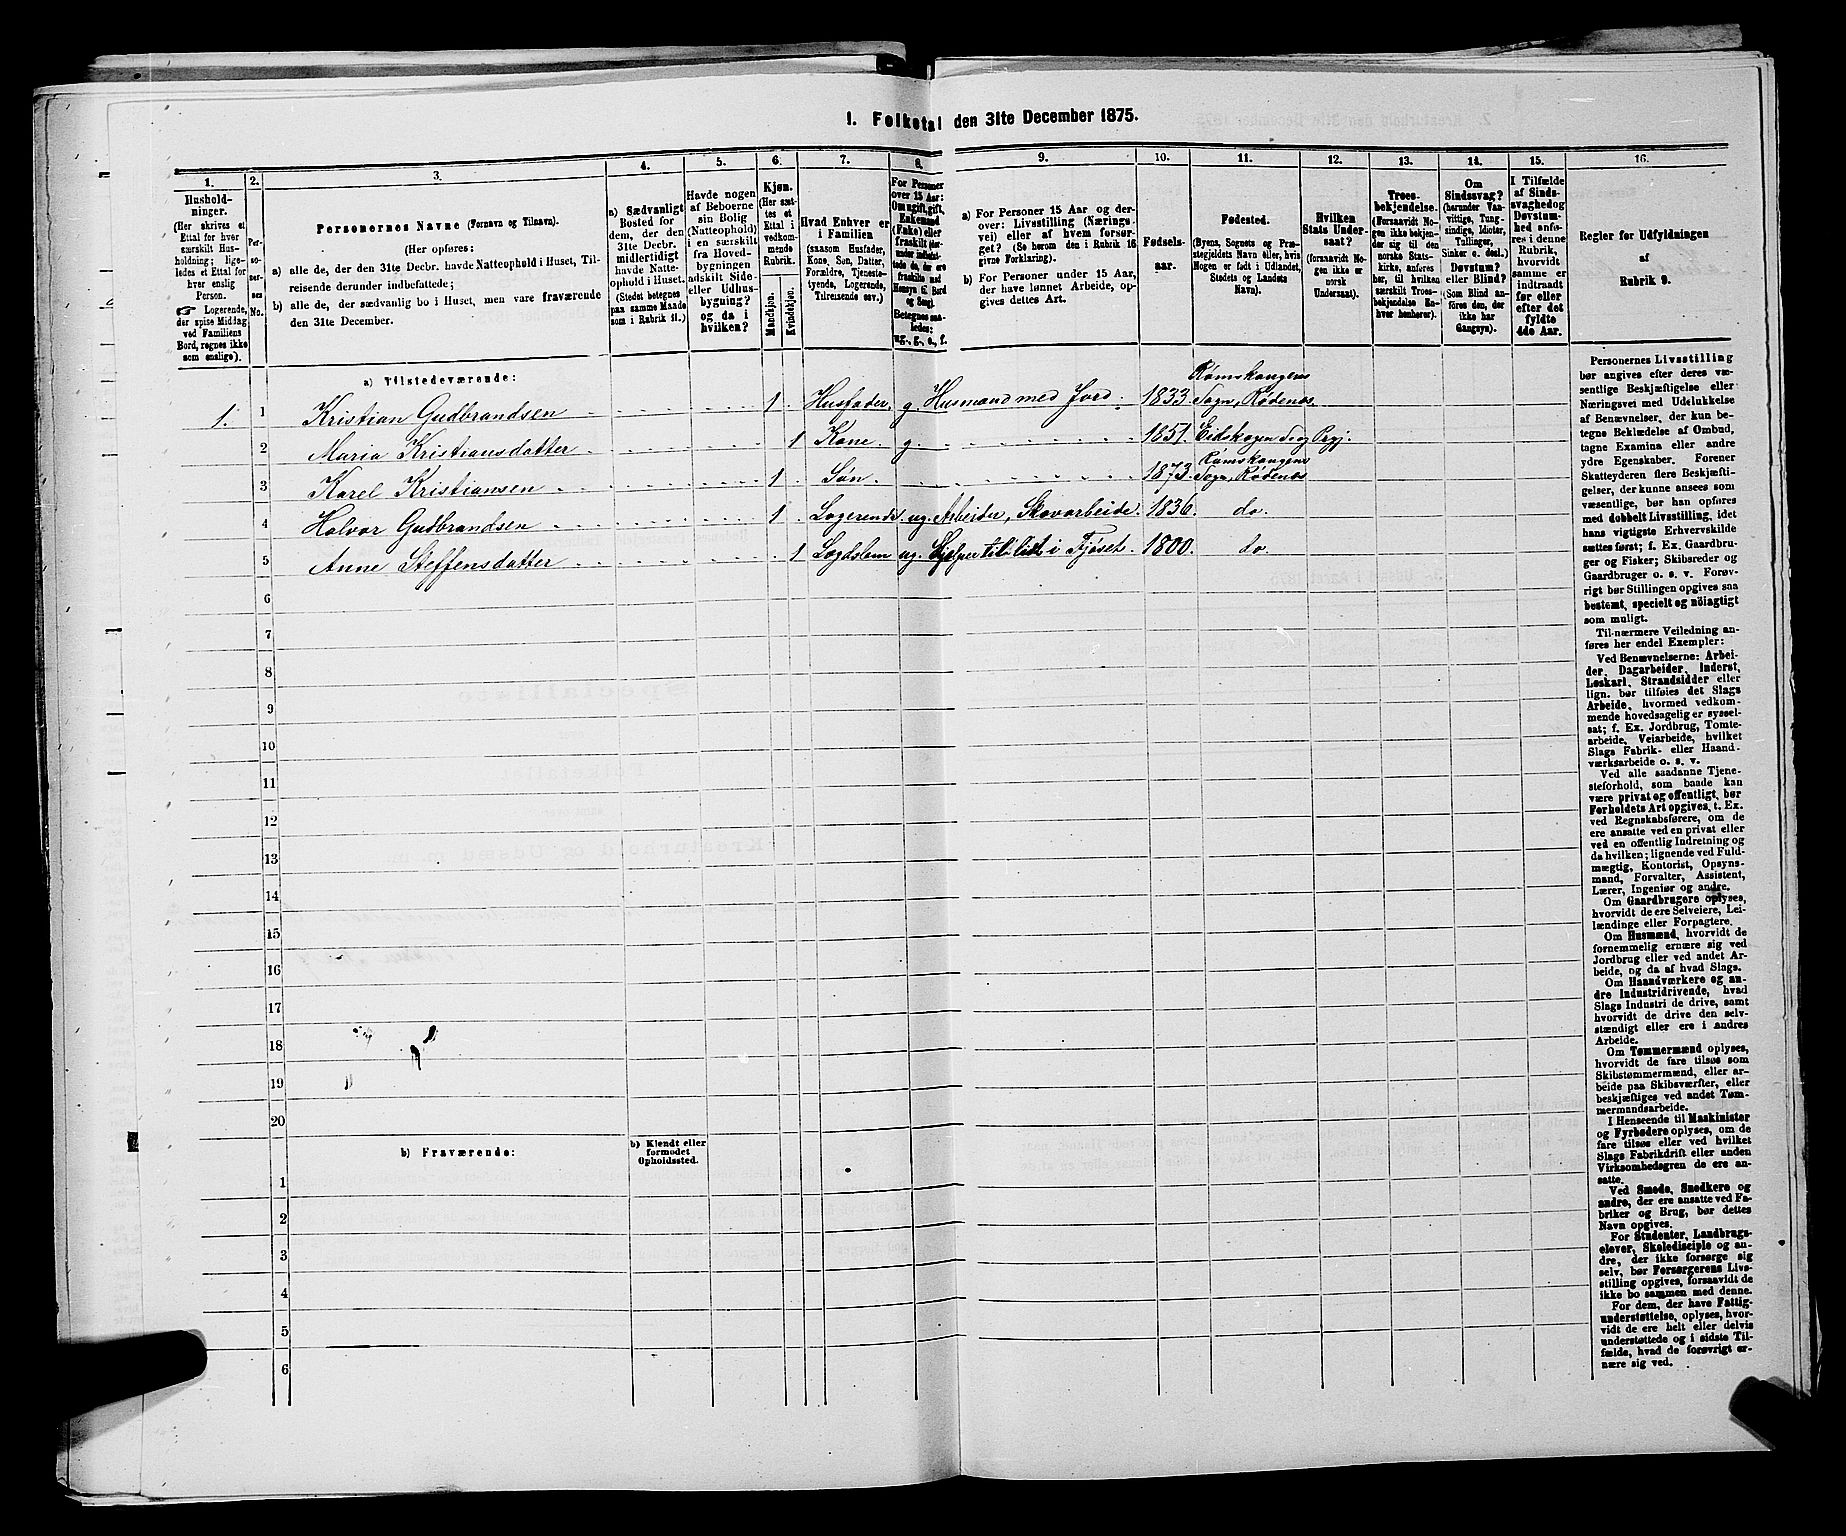 1. Folketal den 31te December 1875.
1. 2. 3. 4. 5. 6. 7. 8. 9. 10. 11. 12. 13. 14. 15. 16.
Hushold-
ninger.
(Her skrives et
Ettal for hver
særskilt Hus-
holdning; lige-
ledes et Ettal for
hver enslig
Person.
☞ Logerende,
der spise Middag
ved Familiens
Bord, regnes ikke
som enslige).
Per-
so-
ner-
nes
No.
Personernes Navne (Fornavn og Tilnavn).
(Her opføres:
a) alle de, der den 31te Decbr. havde Natteophold i Huset, Til-
reisende derunder indbefattede;
b) alle de, der sædvanlig bo i Huset, men vare fraværende
den 31te December.
a) Sædvanligt
Bosted for
dem, der den
31te Decbr.
midlertidigt
havde Natte-
ophold i Huset.
(Stedet betegnes
paa samme Maade
som i Rubrik 11.)
Havde nogen
af Beboerne
sin Bolig
(Natteophold)
i en særskilt
fra Hoved-
bygningen
adskilt Side-
eller Udhus-
bygning?
og da i
hvilken?
Kjøn.
(Her sæt-
tes et
Ettal i
vedkom-
mende
Rubrik.
Mandkjøn.
Kvindekjøn.
Hvad Enhver er
i Familien
(saasom Husfader,
Kone, Søn, Datter,
Forældre, Tjeneste-
tyende, Logerende,
Tilreisende osv.)
For Personer
over 15 Aar:
Om ugift, gift,
Enkemand
(Enke) eller
fraskilt
Betegnes saa-
ledes:
ug., g., e., f.
a) For Personer 15 Aar og der-
over: Livsstilling (Nærings-
vei) eller af hvem forsør-
get? (Se herom den i Rubrik 16
givne Forklaring).
b) For Personer under 15 Aar,
der have lønnet Arbeide, op-
gives dettes Art.
Fødsels-
aar.
Fødested.
(Byens, Sognets og Præ-
stegjeldets Navn eller, hvis
Nogen er født i Udlandet,
Stedets og Landets
Navn).
Hvilken
Stats Under-
saat?
(forsaavidt No-
gen ikke er
norsk
Undersaat).
Troes-
bekjendelse.
(Forsaavidt No-
gen ikke bekjen-
der sig til den
norske Stats-
kirke, anføres
her, til hvilken
særskilt Troes-
bekjendelse En-
hver henhører).
Om
Sindssvag?
(herunder Van-
vittige, Tung-
sindige, Idioter,
Tullinger,
Sinker o. desl.)
Døvstum?
eller Blind?
(Som Blind an-
føres den, der
ikke har
Gangsyn).
I Tilfælde
af Sinds-
svaghed og
Døvstum-
hed anfø-
res i denne
Rubrik,
hvorvidt
samme er
indtraadt
før eller
efter det
fyldte
4de Aar.
Regler for Udfyldningen
af
Rubrik 9.
a) Tilstedeværende:
1. 1 Kristian Gudbrandsen 1 Husfader g. Husmand med Jord. 1833. Rømskougens Sogn, Rødenæs.
2 Maria Kristiansdatter 1 Kone g. 1851. Eidskogen S. og Prgj.
3 Karel Kristiansen 1 Søn. 1873. Rømskougens Sogn, Rødenæs
4 Halvor Gudbrandsen 1 Logerende ug. Arbeider, Skovarbeide. 1836. do.
5 Anne Steffensdatter 1 Lægdslem ug. Hjelper til lidt i Fjøset. 1800. do.
6
7
8
9
10
11
12
13
14
15
16
17
18
19
20
b) Fraværende:
b) Kjendt eller
formodet
Opholdssted.
1
2
3
4
5
6
Personernes Livsstilling
bør angives efter deres væ-
sentlige Beskjæftigelse eller
Næringsvei med Udelukkelse
af Benævnelser, der kun be-
tegne Beklædelse af Ombud,
tagne Examina eller andre
ydre Egenskaber. Forener
Skatteyderen flere Beskjæfti-
gelser, der kunne ansees som
væsentlige, bør han opføres
med dobbelt Livsstilling, idet
hans vigtigste Erhvervskilde
sættes først; f. Ex. Gaardbru-
ger og Fisker; Skibsreder og
Gaardbruger o. s. v. Forøv-
rigt bør Stillingen opgives saa
bestemt, specielt og nøiagtigt
som muligt.
Til nærmere Veiledning an-
føres her endel Exempler:
Ved Benævnelserne: Arbei-
der, Dagarbeider, Inderst,
Løskarl, Strandsidder eller
lign. bør tilføies det Slags
Arbeide, hvormed vedkom-
mende hovedsagelig er syssel-
sat; f. Ex. Jordbrug, Tomte-
arbeide, Veiarbeide, hvilket
Slags Fabrik- eller Haand-
værksarbeide o. s. v.
Ved alle saadanne Tjene-
steforhold, som baade kan
være privat og offentligt, bør
Forholdets Art opgives, t. Ex.
ved Regnskabsførere, om de
ere ansatte ved en privat eller
ved en offentlig Indretning og
da hvilken; lignende ved Fuld-
mægtig, Kontorist, Opsyns-
mand, Forvalter, Assistent,
Lærer, Ingeniør og andre.
Om Gaardbrugere oplyses,
hvorvidt de ere Selveiere, Lei-
lændinge eller Forpagtere.
Om Husmænd, hvorvidt de
fornemmelig ernære sig ved
Jordbrug eller ved andet Ar-
beide, og da af hvad Slags.
Om Haandværkere og an-
dre Industridrivende, hvad
Slags Industri de drive, samt
hvorvidt de drive den selv-
stændigt eller ere i andres
Arbeide.
Om Tømmermænd oplyses,
hvorvidt de fare tilsøs som
Skibstømmermænd, eller ar-
beide paa Skibsværfter, eller
beskjæftiges ved andet Tøm-
mermandsarbeide.
I Henseende til Maskinister
og Fyrbødere oplyses, om de
fare tilsøs eller ved hvilket
Slags Fabrikdrift eller anden
Virksomhedsgren de ere an-
satte.
Ved Smede, Snedkere og
andre, der ere ansatte ved Fa-
briker og Brug, bør dettes
Navn opgives.
For Studenter, Landbrugs-
elever, Skoledisciple og an-
dre, der ikke forsørge sig
selv, bør Forsørgerens Livs-
stilling opgives, forsaavidt de
ikke bo sammen med denne.
For dem, der have Fattig-
understøttelse, oplyses, hvor-
vidt de ere helt eller delvis
understøttede og i sidste Til-
fælde, hvad de forøvrigt er-
nære sig ved.